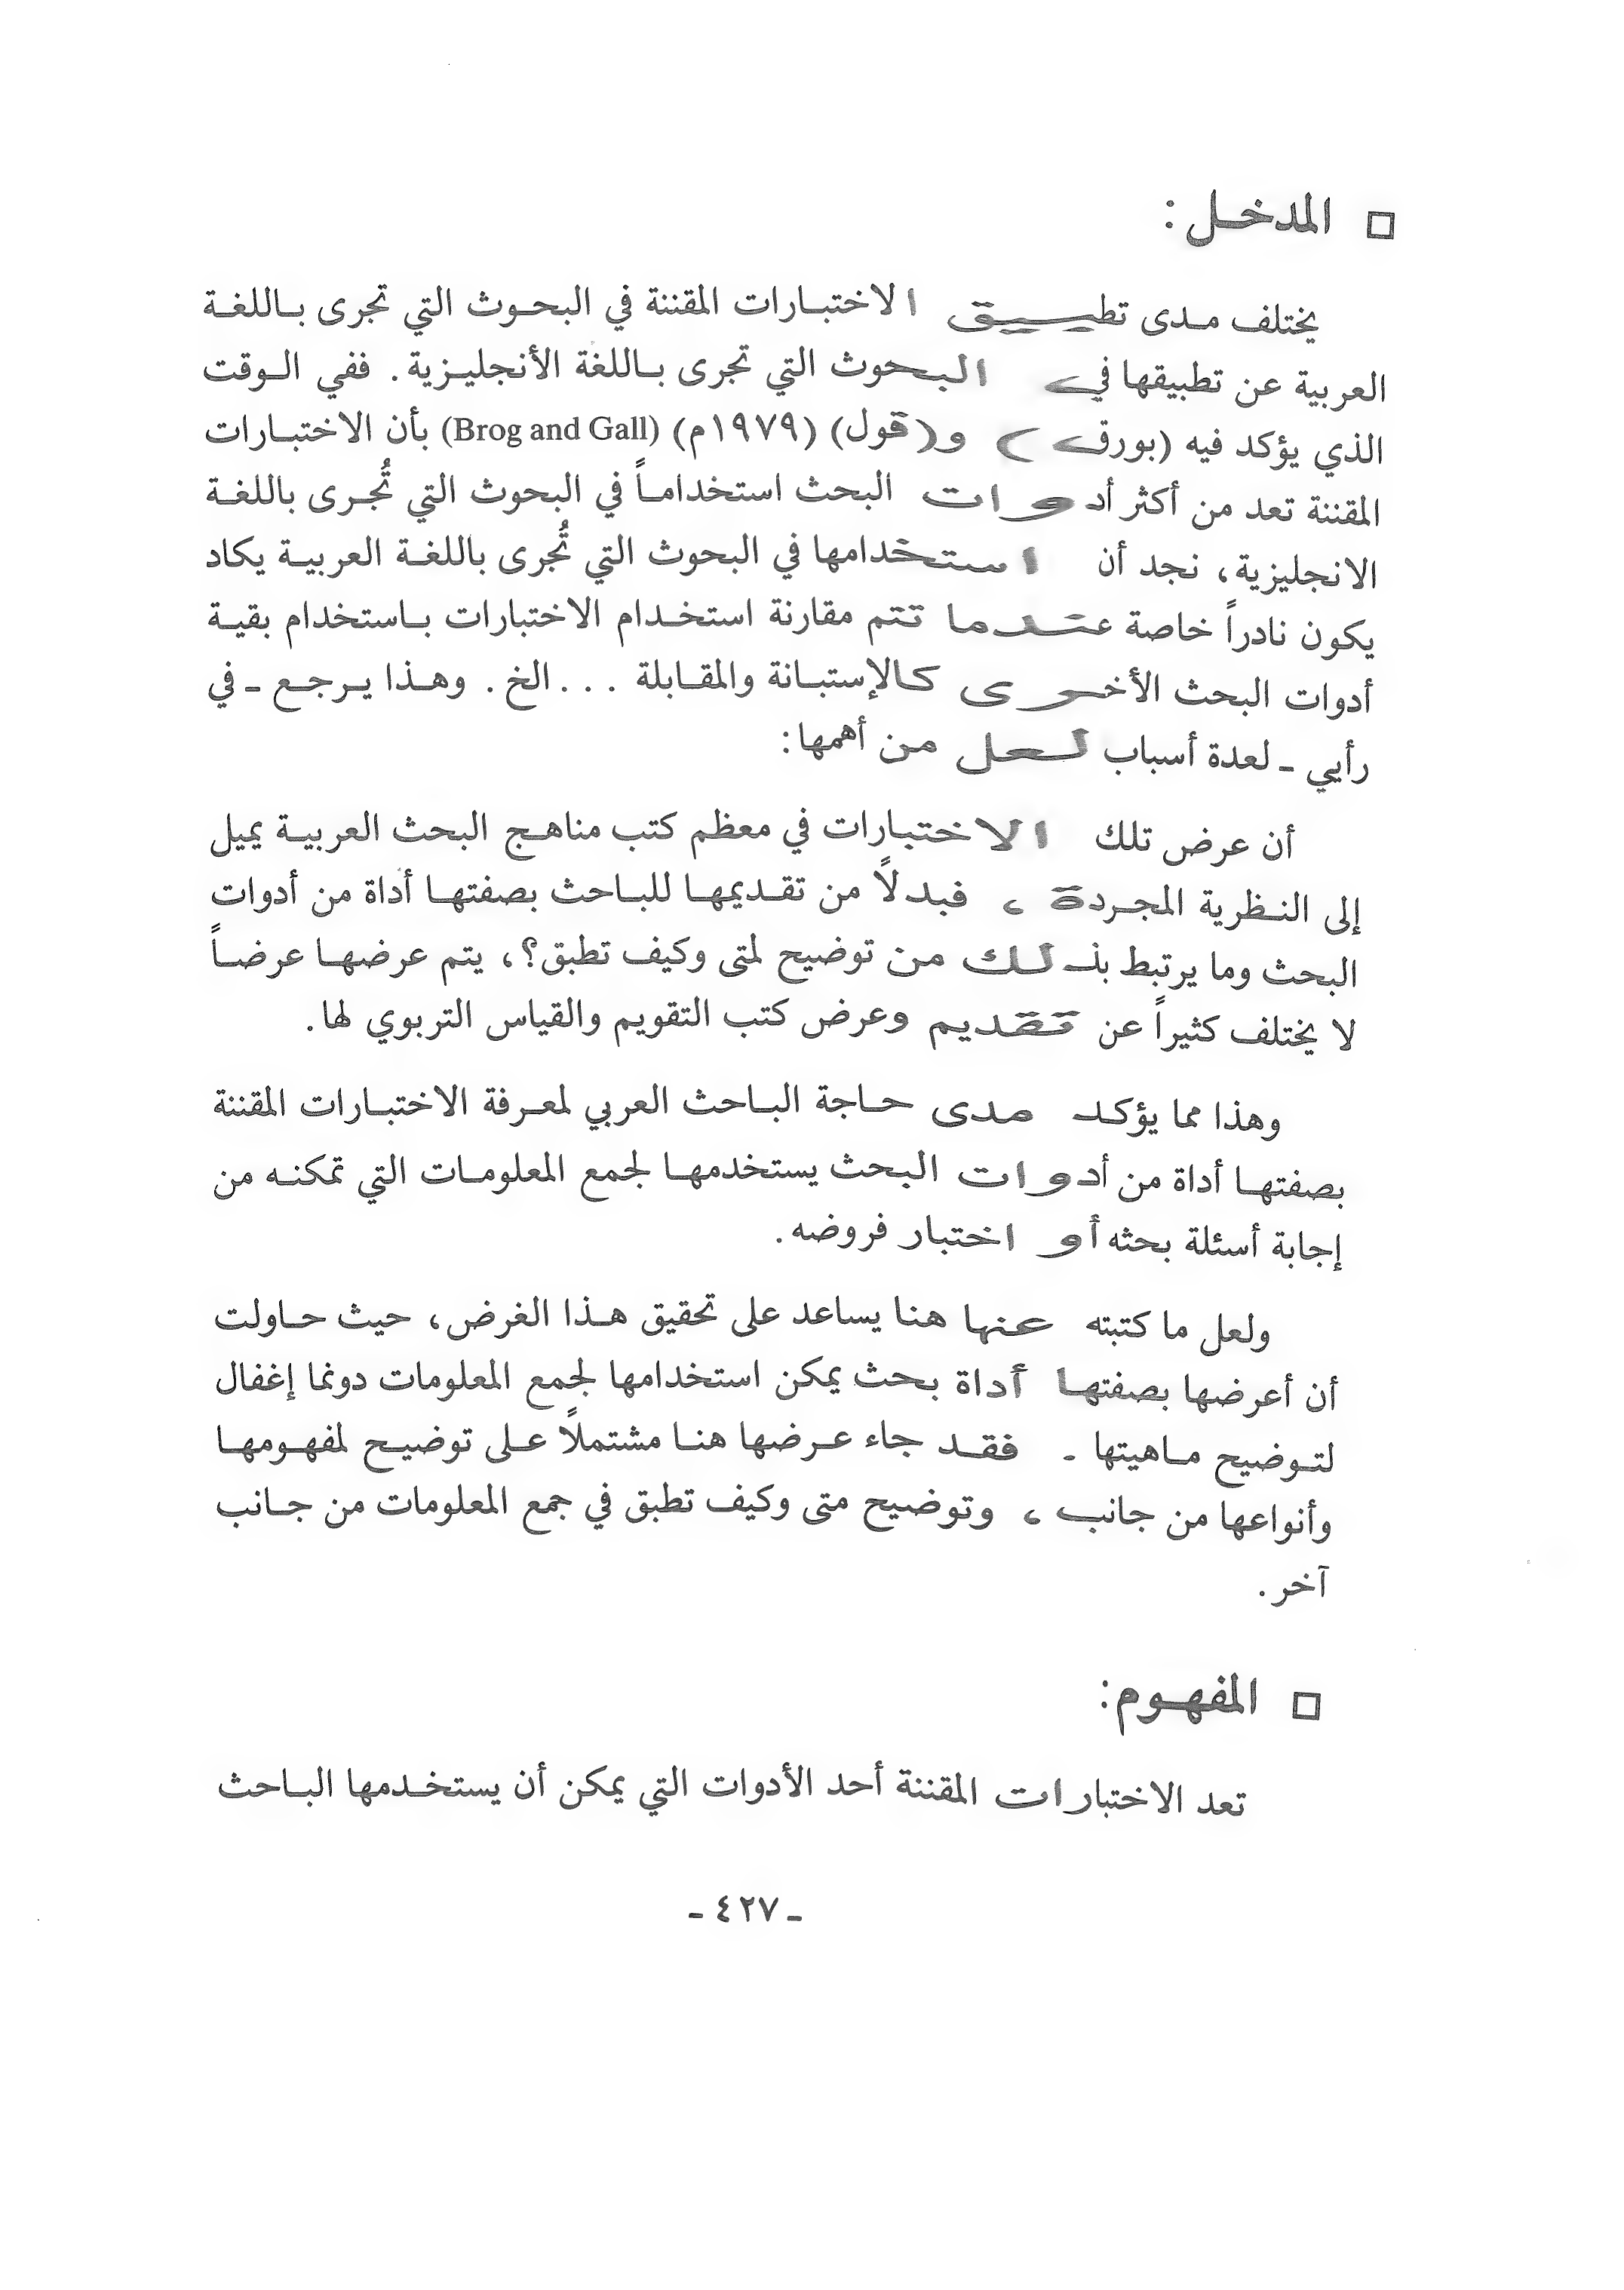 □ المدخل :
يختلف مدى تطبيق الاختبارات المقننة في البحوث التي تجرى باللغة
العربية عن تطبيقها في البحوث التي تجرى باللغة الأنجليزية. ففي الوقت
الذي يؤكد فيه (بورق) و(قول) (١٩٧٩م) (Brog and Gall) بأن الاختبارات
المقننة تعد من أكثر أدوات البحث استخداماً في البحوث التي تُجرى باللغة
الانجليزية، نجد أن استخدامها في البحوث التي تُجرى باللغة العربية يكاد
يكون نادراً خاصة عندما تتم مقارنة استخدام الاختبارات باستخدام بقية
أدوات البحث الأخرى كالإستبانة والمقابلة . . . الخ. وهذا يرجع - في
رأيي - لعدة أسباب لعل من أهمها:
أن عرض تلك الاختبارات في معظم كتب مناهج البحث العربية يميل
إلى النظرية المجردة ، فبدلاً من تقديمها للباحث بصفتها أداة من أدوات
البحث وما يرتبط بذلك من توضيح لمتى وكيف تطبق؟، يتم عرضها عرضاً
لا يختلف كثيراً عن تقديم وعرض كتب التقويم والقياس التربوي لها.
وهذا مما يؤكد مدى حاجة الباحث العربي لمعرفة الاختبارات المقننة
بصفتها أداة من أدوات البحث يستخدمها لجمع المعلومات التي تمكنه من
إجابة أسئلة بحثه أو اختبار فروضه.
ولعل ما كتبته عنها هنا يساعد على تحقيق هذا الغرض، حيث حاولت
أن أعرضها بصفتها أداة بحث يمكن استخدامها لجمع المعلومات دونما إغفال
لتوضيح ماهيتها - فقد جاء عرضها هنا مشتملاً على توضيح لمفهومها
وأنواعها من جانب ، وتوضيح متى وكيف تطبق في جمع المعلومات من جانب
آخر.
□ المفهوم:
تعد الاختبارات المقننة أحد الأدوات التي يمكن أن يستخدمها الباحث
- ٤٢٧ -